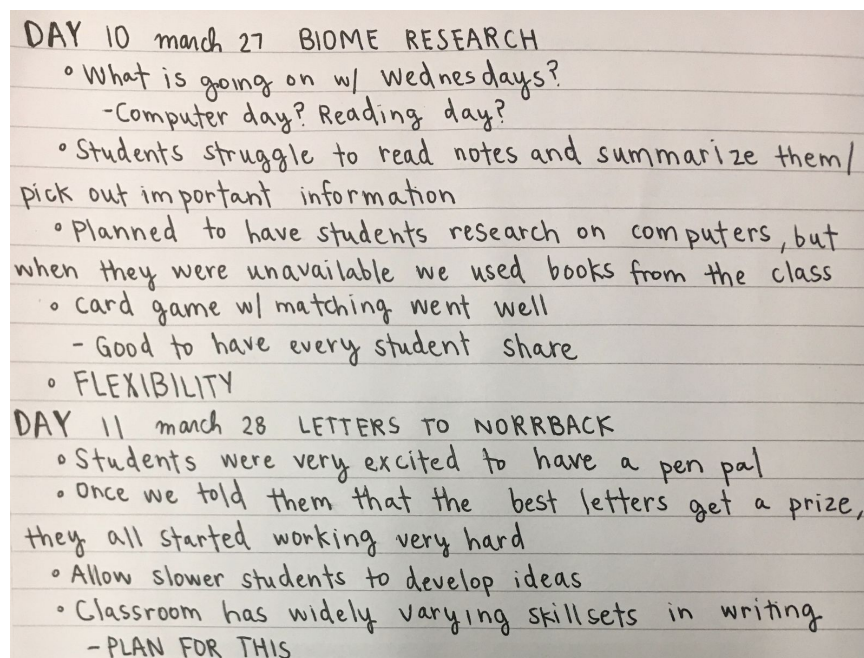 DAY 10 march 27 BIOME RESEARCH
◦ What is going on w/ Wednesdays?
-Computer day? Reading day?
◦ Students struggle to read notes and summarize them/
pick out important information
◦ Planned to have students research on computers, but
when they were unavailable we used books from the class
◦ Card game w/ matching went well
- Good to have every student share
◦ FLEXIBILITY
DAY 11 march 28 LETTERS TO NORRBACK
◦ Students were very excited to have a pen pal
◦ Once we told them that the best letters get a prize,
they all started working very hard
◦ Allow slower students to develop ideas
◦ Classroom has widely varying skillsets in writing
- PLAN FOR THIS